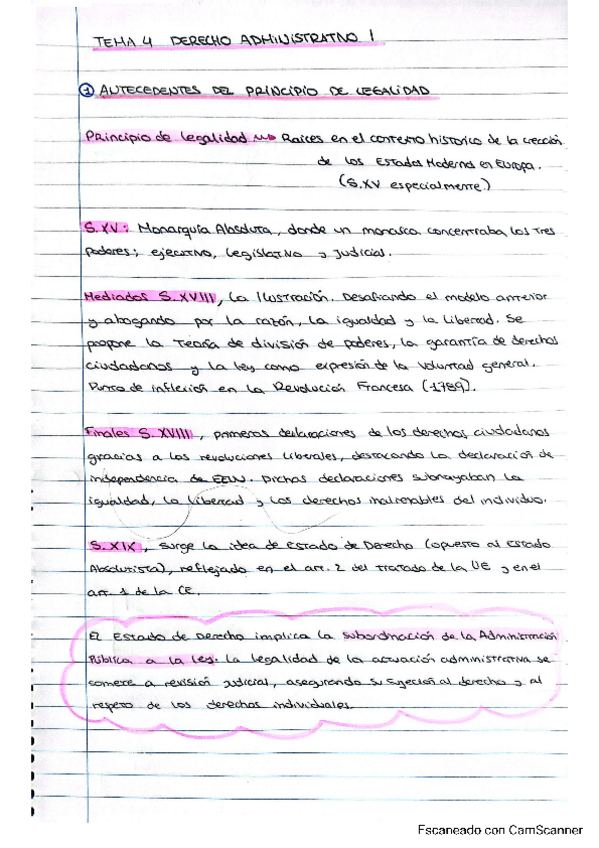 TEMA 4 DERECHO ADMINISTRATIVO I
① ANTECEDENTES DEL PRINCIPIO DE LEGALIDAD
Principio de legalidad → Raíces en el contexto histórico de la creación
de los Estados Modernos en Europa.
(S.XV especialmente)
S.XV: Monarquía Absoluta, donde un monarca concentraba los tres
poderes; ejecutivo, legislativo y Judicial.
Mediados S.XVIII, La Ilustración. Desafiando el modelo anterior
y abogando por la razón, la igualdad y la libertad. Se
propone la Teoría de división de poderes, la garantía de derechos
ciudadanos y la ley como expresión de la voluntad general.
Punto de inflexión en la Revolución Francesa (1789).
Finales S.XVIII, primeras declaraciones de los derechos ciudadanos
gracias a las revoluciones liberales, destacando la declaración de
independencia de EEUU. Dichas declaraciones subrayaban la
igualdad, la libertad y los derechos inalienables del individuo.
S.XIX, surge la idea de Estado de Derecho (opuesto al Estado
Absolutista), reflejado en el art. 2 del tratado de la UE y en el
art. 1 de la CE.
El Estado de Derecho implica la subordinación de la Administración
Pública a la Ley. La legalidad de la actuación administrativa se
somete a revisión judicial, asegurando su sujeción al derecho y al
respeto de los derechos individuales.
Escaneado con CamScanner